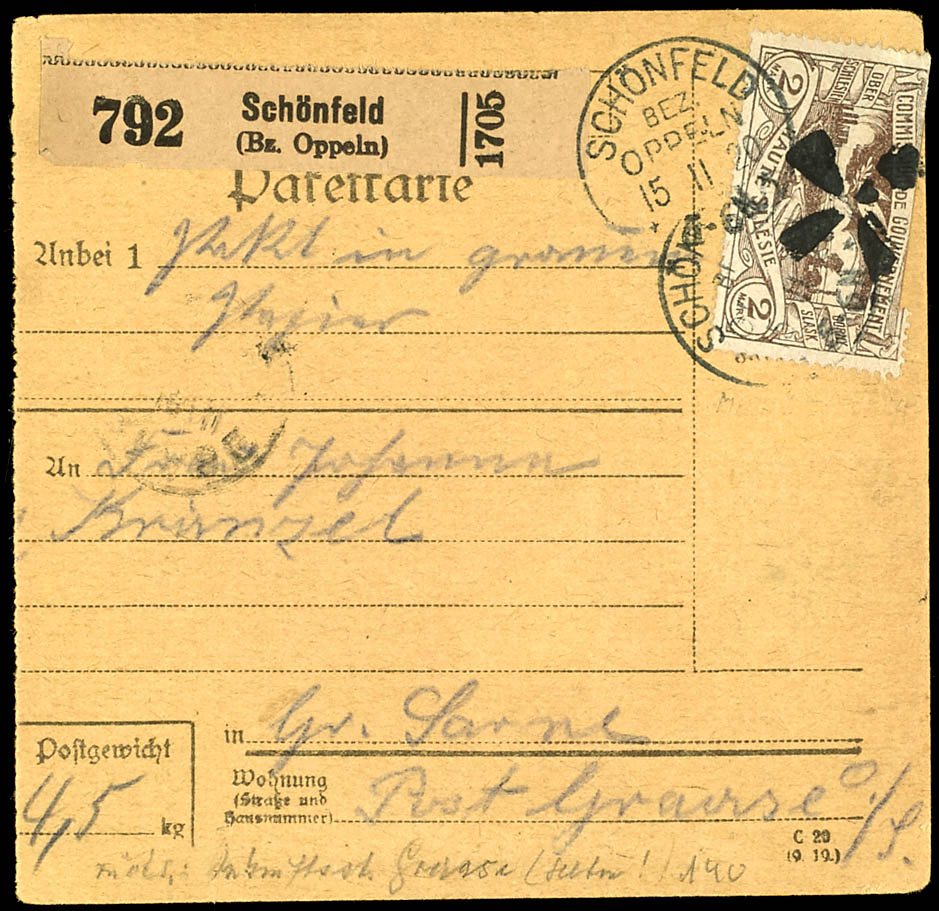 792 Schönfeld
(Bz. Oppeln) 1705
SCHÖNFELD
BEZ.
OPPELN
15 11 20
Paketkarte
COMMISSION DE GOUVERNEMENT
OBER
SCHLESIEN
HAUTE SILÉSIE
GÓRNY
ŚLĄSK
2
MARK
2
MARK
Anbei 1 Pakt in grauem
Papier
An Frau Johanna
Kränzel
in Gr. Sarne
Postgewicht
4,5 kg
Wohnung
(Straße und
Hausnummer) Post Graase O./S.
C 29
(9. 19.)
Graase (selten!) 140